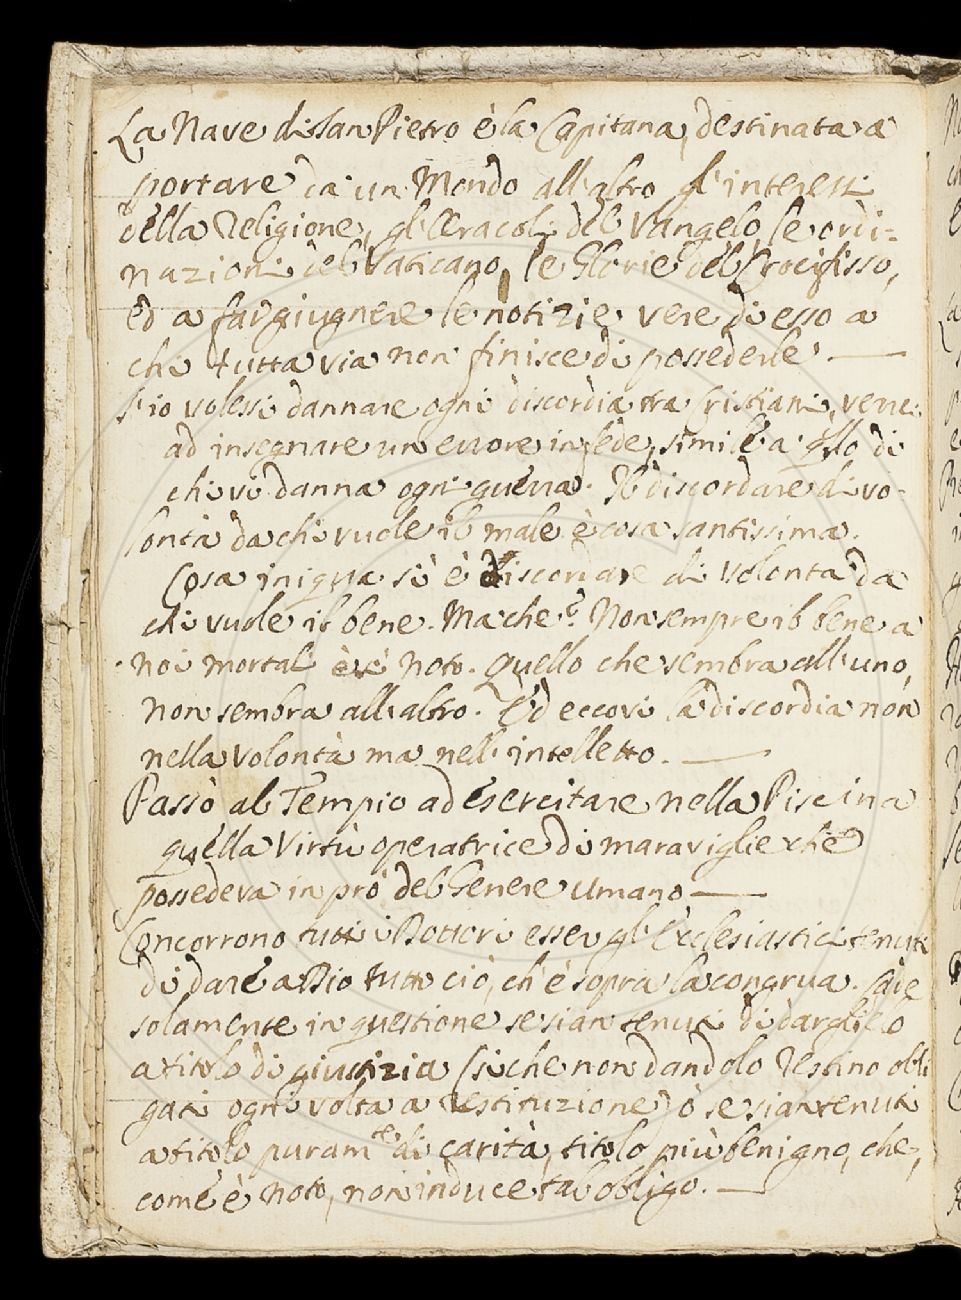 La Nave di San Pietro è la Capitana, destinata a
portare da un Mondo all'altro gl'interessi
della Religione, gl'Oracoli del Vangelo, le ordi-
nazioni del Vaticano, le Glorie del Crocifisso,
ed a far giugnere le notizie vere di esso a
chi tutta via non finisce di possederle. —
S'io volessi dannare ogni discordia tra Cristiani, verrei
ad insegnare un errore in fede, simile a qllo di
chi vi danna ogni guerra. Il discordare di vo-
lontà da chi vuole il male è cosa santissima.
Cosa iniqua sì è discordare di volontà da
chi vuole il bene. Ma che? Non sempre il bene a
noi mortali è noto. Quello che sembra all'uno,
non sembra all'altro. Ed eccovi la discordia non
nella volontà ma nell'intelletto. —
Passò al Tempio ad esercitare nella Piscina
quella Virtù operatrice di maraviglie che
possedeva in prò del Genere Umano —
Concorrono tutti i Dottori esser gl'Ecclesiastici tenuti
di dare a Dio tutto ciò, ch'è sopra la congrua. Cade
solamente in questione se sian tenuti di darglielo
a titolo di giustizia (sì che non dandolo restino obli
gati ogni volta a restituzione) ò se sian tenuti
a titolo puram.te di carità, titolo più benigno, che,
come è noto, non induce tal obligo. —